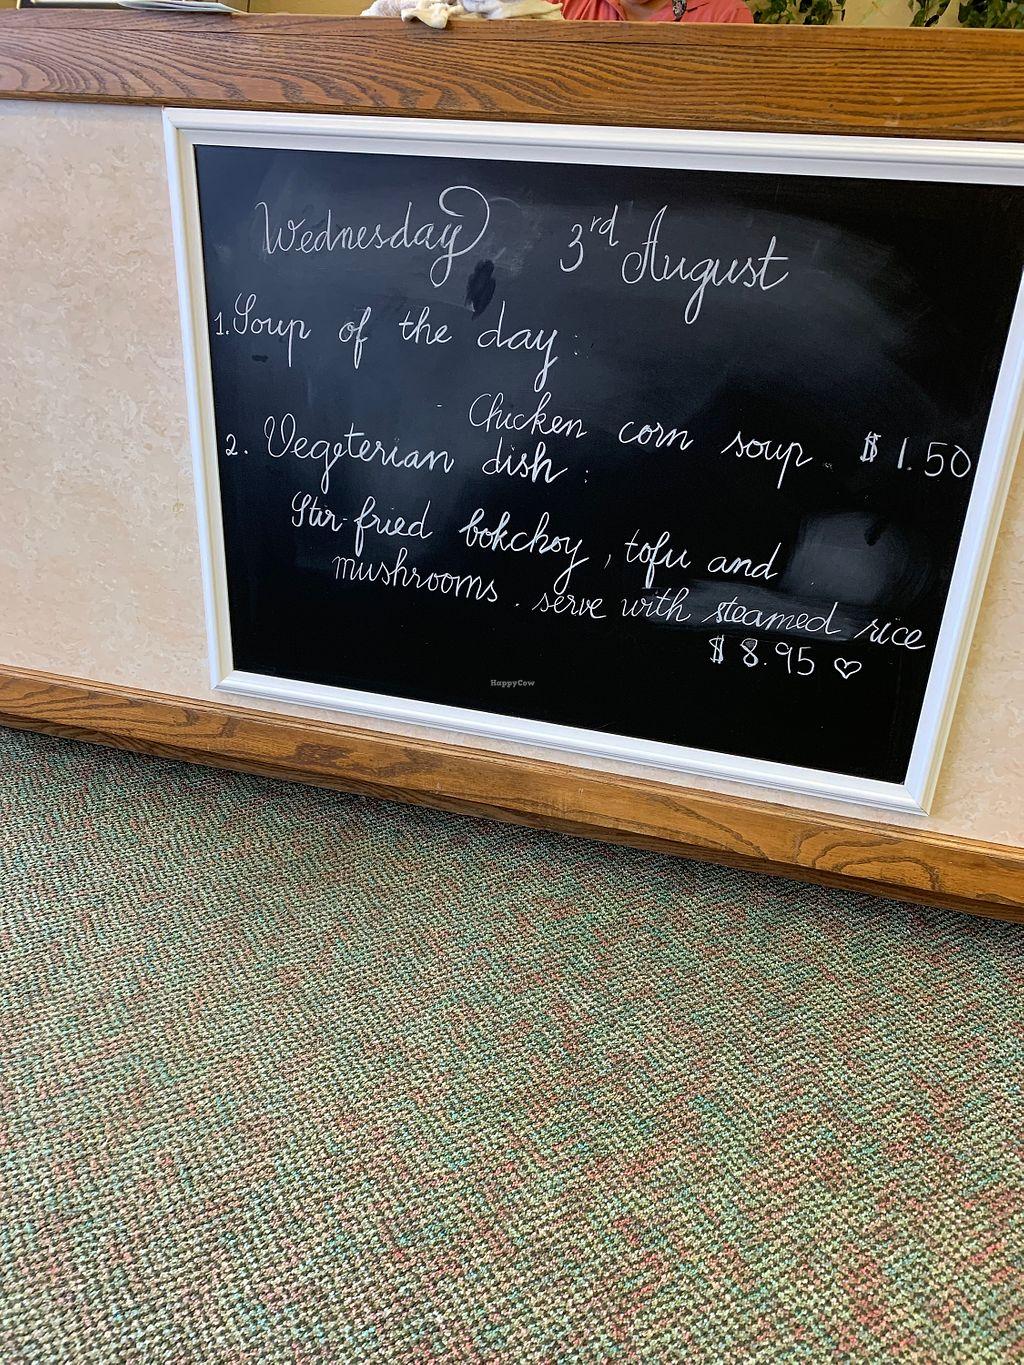 Wednesday 3rd August
1. Soup of the day :
- Chicken corn soup. $ 1.50
2. Vegeterian dish :
Stir-fried bokchoy, tofu and
mushrooms. serve with steamed rice
$ 8.95 ♡
HappyCow